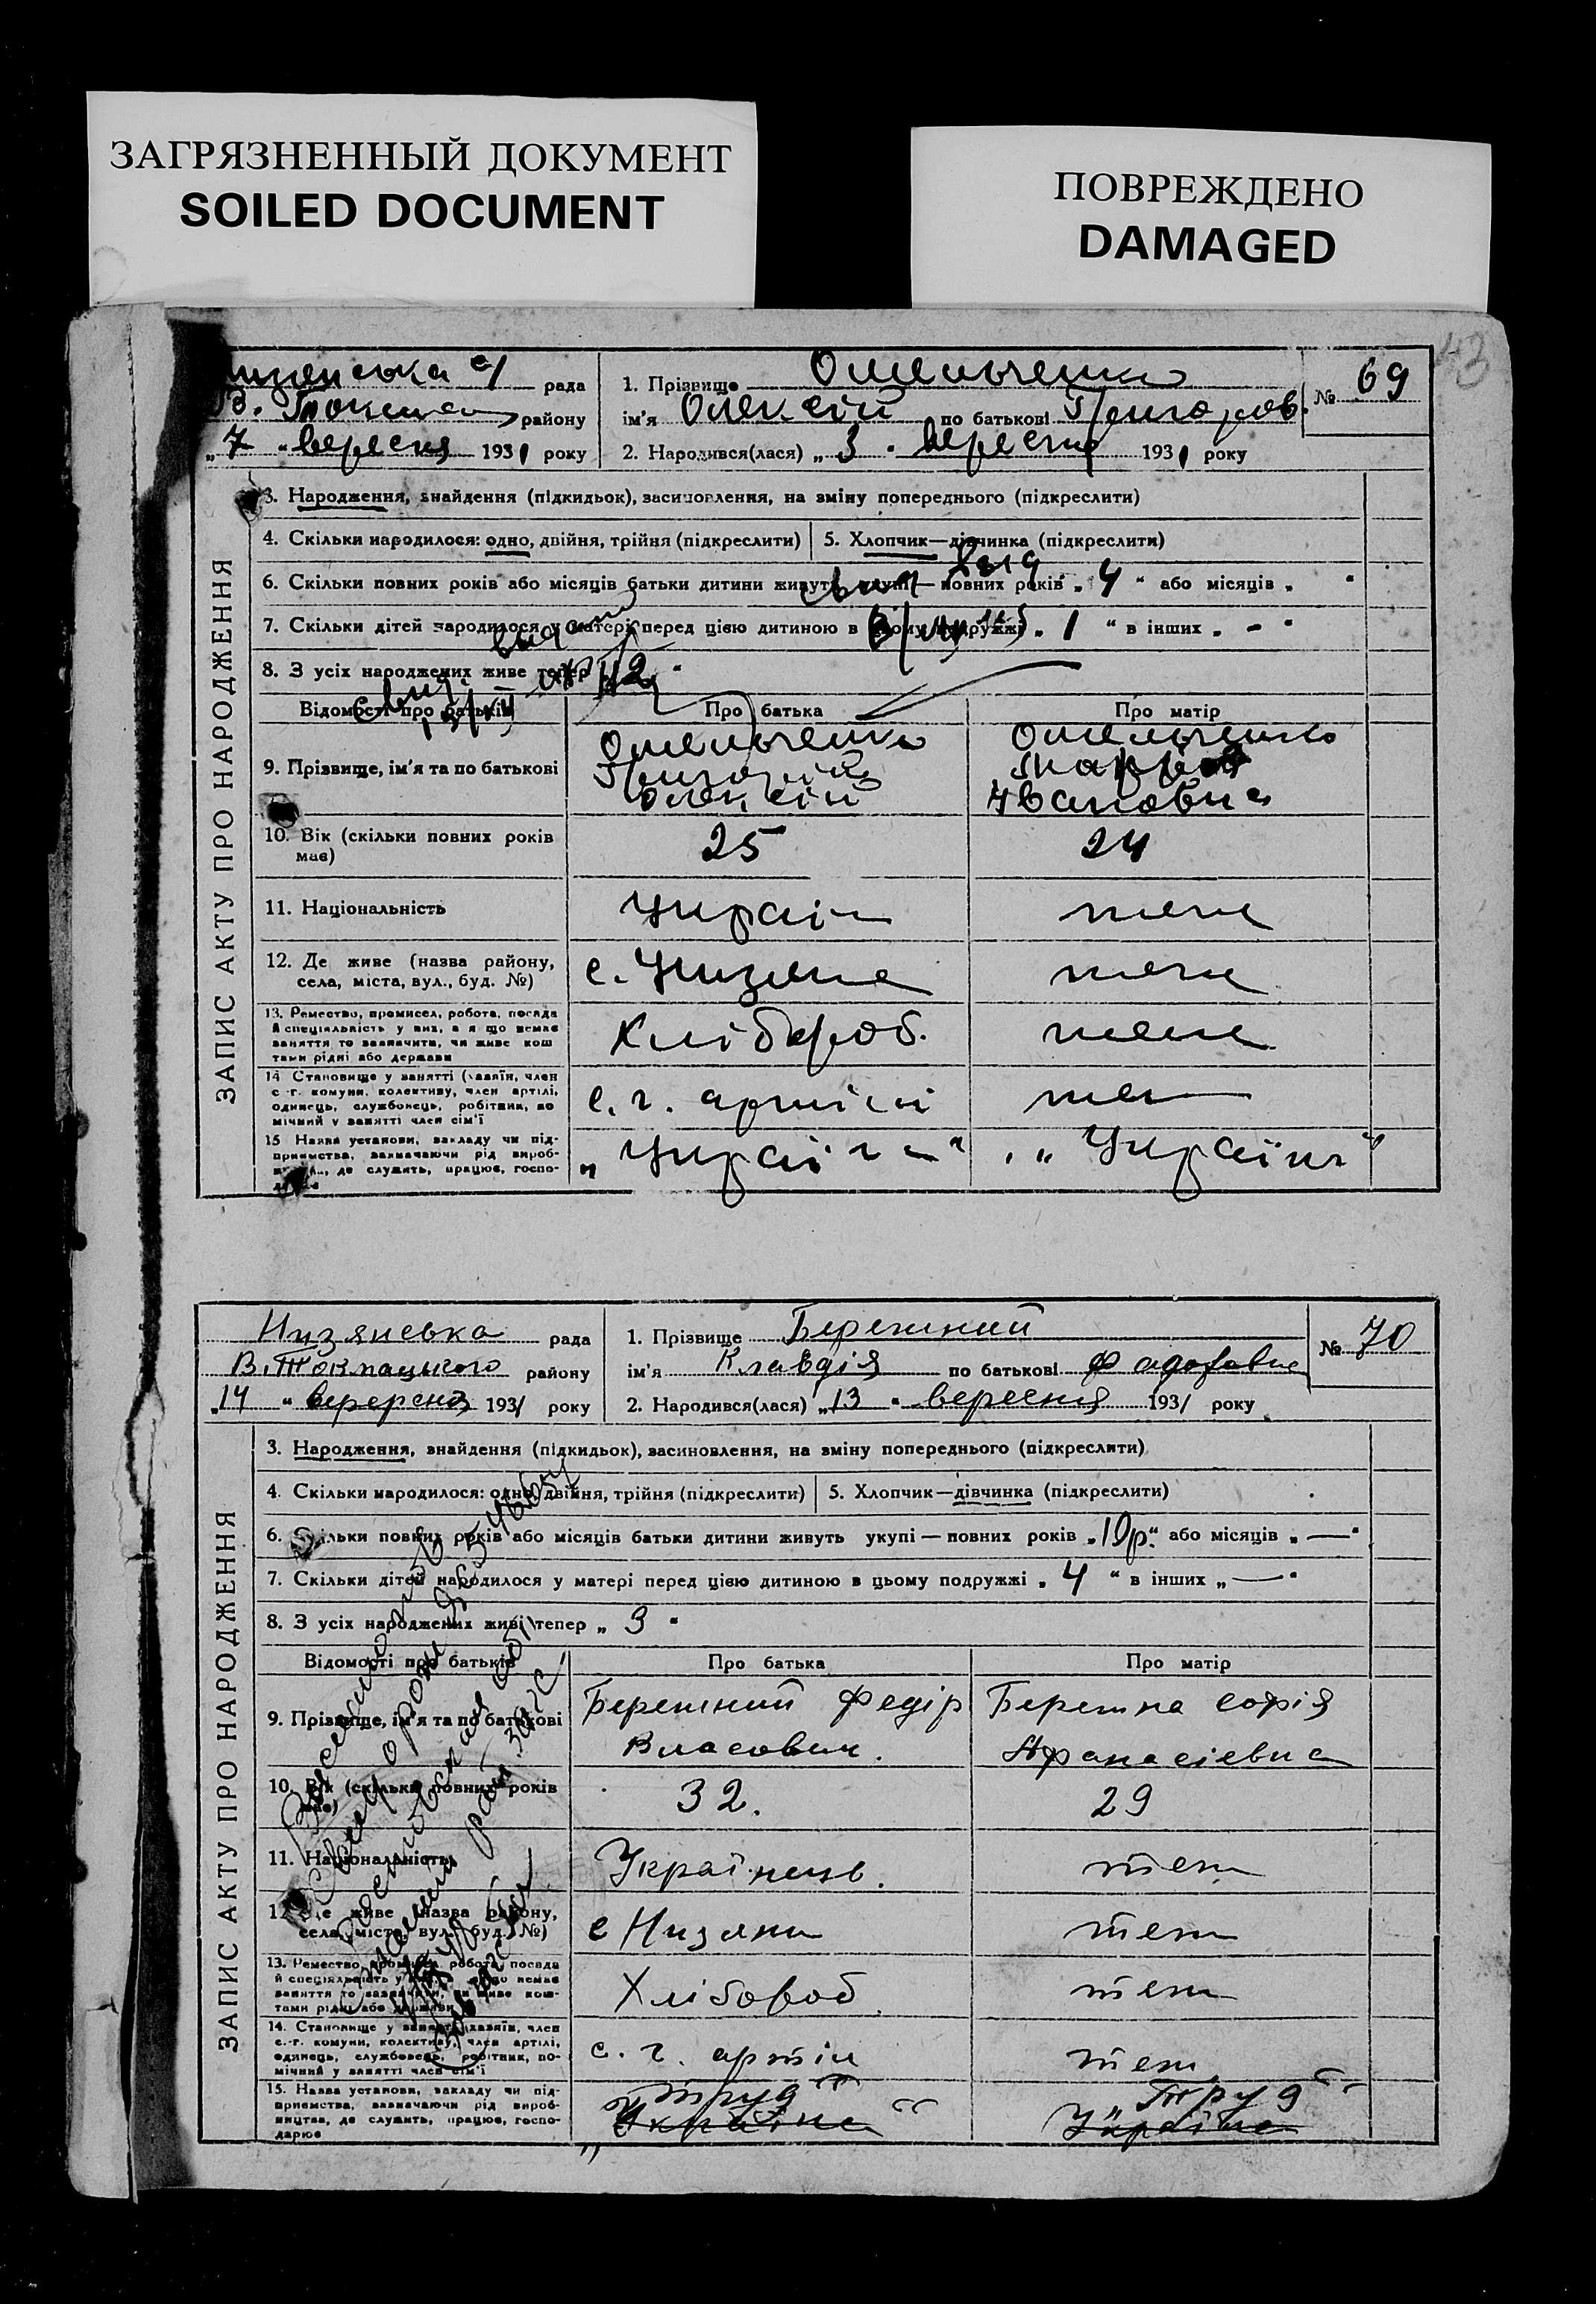 ЗАГРЯЗНЕННЫЙ ДОКУМЕНТ
SOILED DOCUMENT
ПОВРЕЖДЕНО
DAMAGED
43
рада
району
„7“ вересня 1931 року
1. Прізвище Омельченко
ім'я Олексій по батькові Григоров.
2. Народився(лася) „3“ вересня 1931 року
№ 69
ЗАПИС АКТУ ПРО НАРОДЖЕННЯ
3. Народження, знайдення (підкидьок), засиновлення, на зміну попереднього (підкреслити)
4. Скільки народилося: одно, двійня, трійня (підкреслити)
5. Хлопчик—дівчинка (підкреслити)
6. Скільки повних років або місяців батьки дитини живуть укупі — повних років „4“ або місяців „ “
7. Скільки дітей народилося у матері перед цією дитиною в цьому подружжі „1“ в інших „-“
8. З усіх народжених живе тепер „2“
Відомості про батьків
Про батька
Про матір
9. Прізвище, ім'я та по батькові
Омельченко
Григорій
Олексій
Омельченко
Ивановна
10. Вік (скільки повних років
має)
25
24
11. Національність
Україн
теж
12. Де живе (назва району,
села, міста, вул., буд. №)
с. Низяне
теж
13. Ремество, промисел, робота, посада
й спеціальність у них, а я що немає
заняття то зазначити, чи живе кош
тами рідні або держави
Хлібороб.
теж
14 Становище у занятті (хазяїн, член
с -г. комуни, колективу, член артілі,
одинець, службовець, робітник, по
мічний у занятті член сім'ї
с. г. артілі
теж
15 Назва установи, закладу чи під-
приємства, зазначаючи рід вироб-
де служить, працює, госпо-
„Україна“
„Україна“
Низянська рада
В. Токмацького району
„14“ 1931 року
1. Прізвище Бережний
ім'я Клавдія по батькові
2. Народився(лася) „13“ вересня 1931 року
№ 70
ЗАПИС АКТУ ПРО НАРОДЖЕННЯ
3. Народження, знайдення (підкидьок), засиновлення, на зміну попереднього (підкреслити)
4. Скільки народилося: одно, двійня, трійня (підкреслити)
5. Хлопчик—дівчинка (підкреслити)
6. Скільки повних років або місяців батьки дитини живуть укупі — повних років „10р.“ або місяців „—“
7. Скільки дітей народилося у матері перед цією дитиною в цьому подружжі „4“ в інших „—“
8. З усіх народжених живі тепер „3“
Відомості про батьків
Про батька
Про матір
9. Прізвище, ім'я та по батькові
Бережний Федір
Власович.
Бережна Софія
Афанасієвна
10. Вік (скільки повних років
має)
32.
29
11. Національність
Українець.
теж
12. Де живе (назва району,
села, міста, вул., буд. №)
с Низяни
теж
13. Ремество, промисел, робота, посада
й спеціальність у них, а якщо немає
заняття то зазначити, чи живе кош-
тами рідні або держави
Хлібороб
теж
14. Становище у занятті (хазяїн, член
с.-г. комуни, колективу, член артілі,
одинець, службовець, робітник, по-
мічний у занятті член сім'ї
с. г. артіл
теж
15. Назва установи, закладу чи під-
приємства, зазначаючи рід вироб-
ництва, де служить, працює, госпо-
дарює
„Труд“
„Україна“
„Труд“
Україна